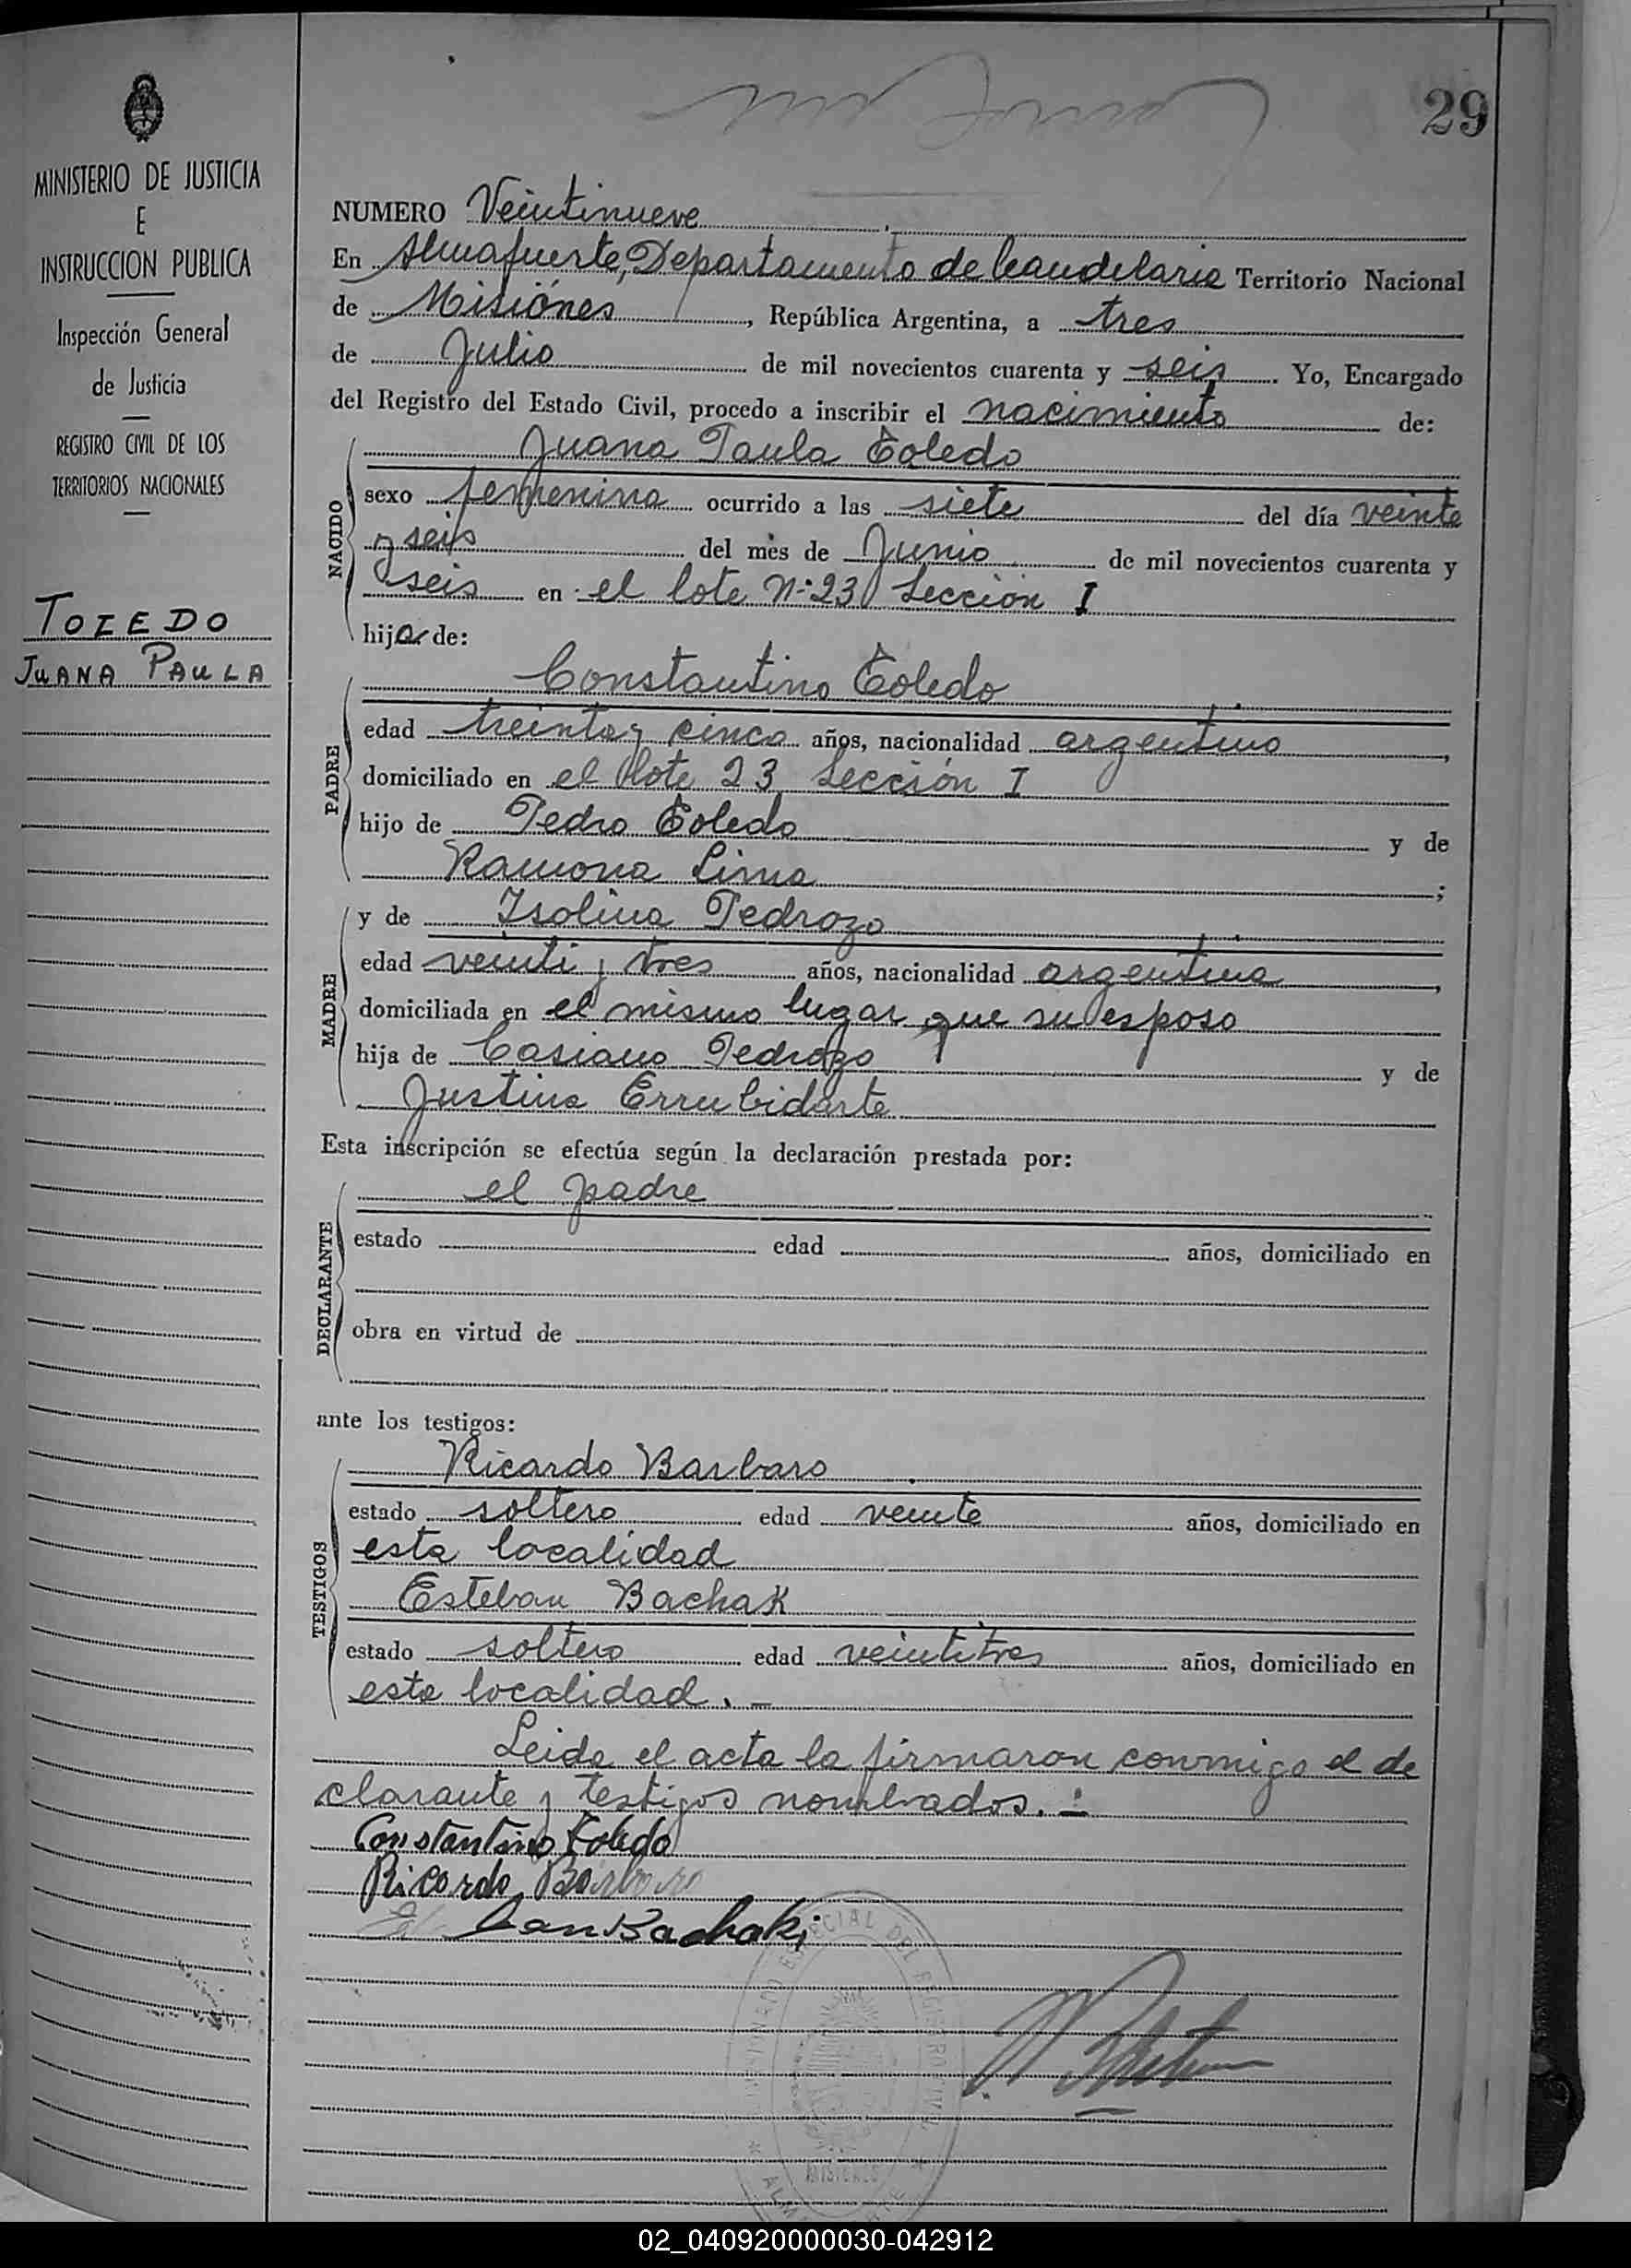 29
MINISTERIO DE JUSTICIA
E
INSTRUCCION PUBLICA
Inspección General
de Justicia
REGISTRO CIVIL DE LOS
TERRITORIOS NACIONALES
TOLEDO
JUANA PAULA
NUMERO Veintinueve
En Almafuerte, Departamento de Candelaria Territorio Nacional
de Misiones, República Argentina, a tres
de Julio de mil novecientos cuarenta y seis. Yo, Encargado
del Registro del Estado Civil, procedo a inscribir el nacimiento de:
NACIDO
Juana Paula Toledo
sexo femenina ocurrido a las siete del día veinte
y seis del mes de Junio de mil novecientos cuarenta y
seis en el lote Nº 23 Sección I
hija de:
PADRE
Constantino Toledo
edad treinta y cinco años, nacionalidad argentino,
domiciliado en el lote 23 Sección I
hijo de Pedro Toledo y de
Ramona Lima;
MADRE
y de Isolina Pedrozo
edad veinti y tres años, nacionalidad argentina,
domiciliada en el mismo lugar que su esposo
hija de Casiano Pedrozo y de
Justina Errubidarte
Esta inscripción se efectúa según la declaración prestada por:
DECLARANTE
el padre
estado edad años, domiciliado en
obra en virtud de
ante los testigos:
TESTIGOS
Ricardo Barbaro
estado soltero edad veinte años, domiciliado en
esta localidad
Esteban Bachak
estado soltero edad veintitres años, domiciliado en
esta localidad. —
Leida el acta la firmaron conmigo el de
clarante y testigos nombrados. —
Constantino Toledo
Ricardo Barbaro
02_040920000030-042912